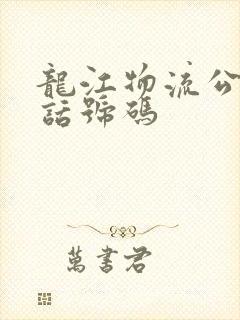 龍江物流公
話號碼
萬書君